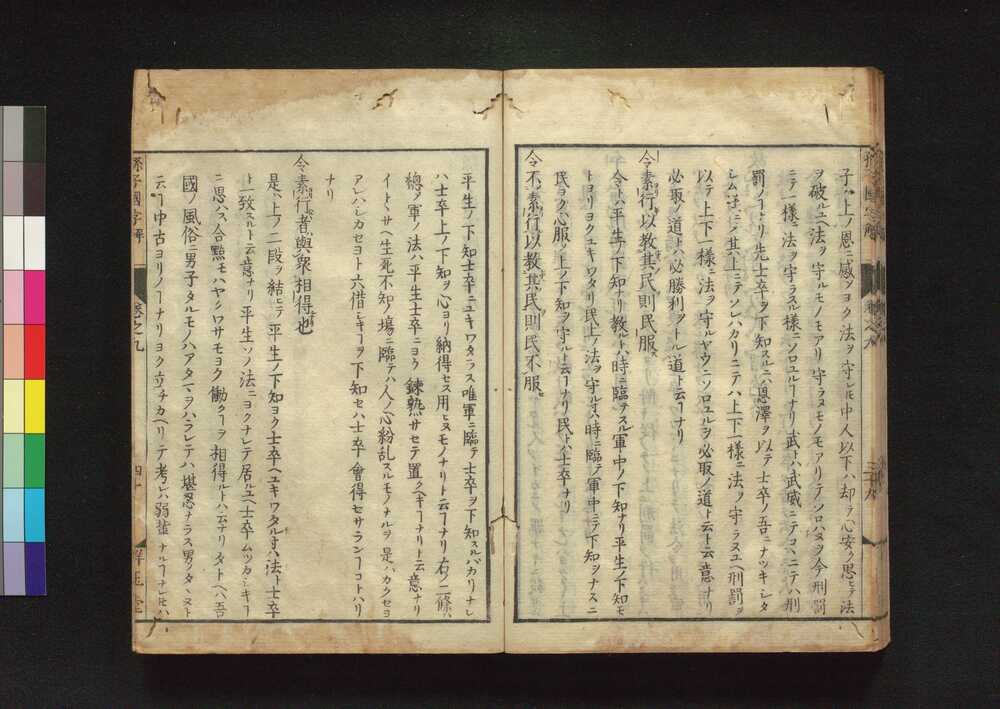 子ハ上ノ恩ニ感ツヨク法ヲ守レ𪜈中人以下ハ却テ心安ク思ヒテ法
ヲ破ルユヘ法ヲ守ルモノモアリ守ラヌモノモアリテソロハヌヲ今刑罰
ニテ一様ニ法ヲ守ラスル様ニソロユルヿナリ武トハ武威ニテコヽニテハ刑
罰ノヿナリ先士卒ヲ下知スルニハ恩澤ヲ以テ士卒ノ吾ニナツキシタ
シム様ニシ其上ニテソレハカリニテハ上下一様ニ法ヲ守ラヌユヘ刑罰ヲ
以テ上下一様ニ法ヲ守ルヤウニソロユルヲ必取ノ道ト云ト云意ナリ
必取ノ道トハ必勝利ヲトル道ト云ヿナリ
令素行以教其民則民服
令トハ平生ノ下知ナリ教ルトハ時ニ臨テスル軍中ノ下知ナリ平生ノ下知モ
トヨリヨクユキワタリ民上ノ法ヲ守ル𪜈ハ時ニ臨テ軍中ニテ下知ヲナスニ
民ヨク心服シ上ノ下知ヲ守ルト云ヿナリ民トハ士卒ナリ
令不素行以教其民則民不服
平生ノ下知士卒ニユキワタラス唯軍ニ臨テ士卒ヲ下知スルバカリナレ
ハ士卒上ノ下知ヲ心ヨリ納得セス用ヒヌモノナリト云ヿナリ右ノ二條ハ
總シテ軍ノ法ハ平生士卒ニヨク錬熟サセテ置クベキヿナリト云意ナリ
イトヾサヘ生死不知ノ場ニ臨テハ人ノ心紛乱スルモノナルヲ是ハカクセヨ
アレハシカセヨト六借シキヿヲ下知セハ士卒會得セサランヿコトハリ
ナリ
令素行者與衆相得也
是ハ上ノ二段ヲ結ヒテ平生ノ下知ヨク士卒ヘユキワタル𪜈ハ法ト士卒
ト一致スルト云意ナリ平生ソノ法ニヨクナレテ居ルユヘ士卒ムツカシキヿ
ニ思ハス合點モハヤクワサモヨク働クヿヲ相得ルトハ云ナリタトヘハ吾
國ノ風俗ニ男子タルモノハアタマヲハラレテハ堪忍ナラス男ヲタヽヌト
云ヿ中古ヨリノヿナリヨク立チカヘリテ考レハ弱輩ナルヿナレ𪜈
孫子國字解
卷之九
四十